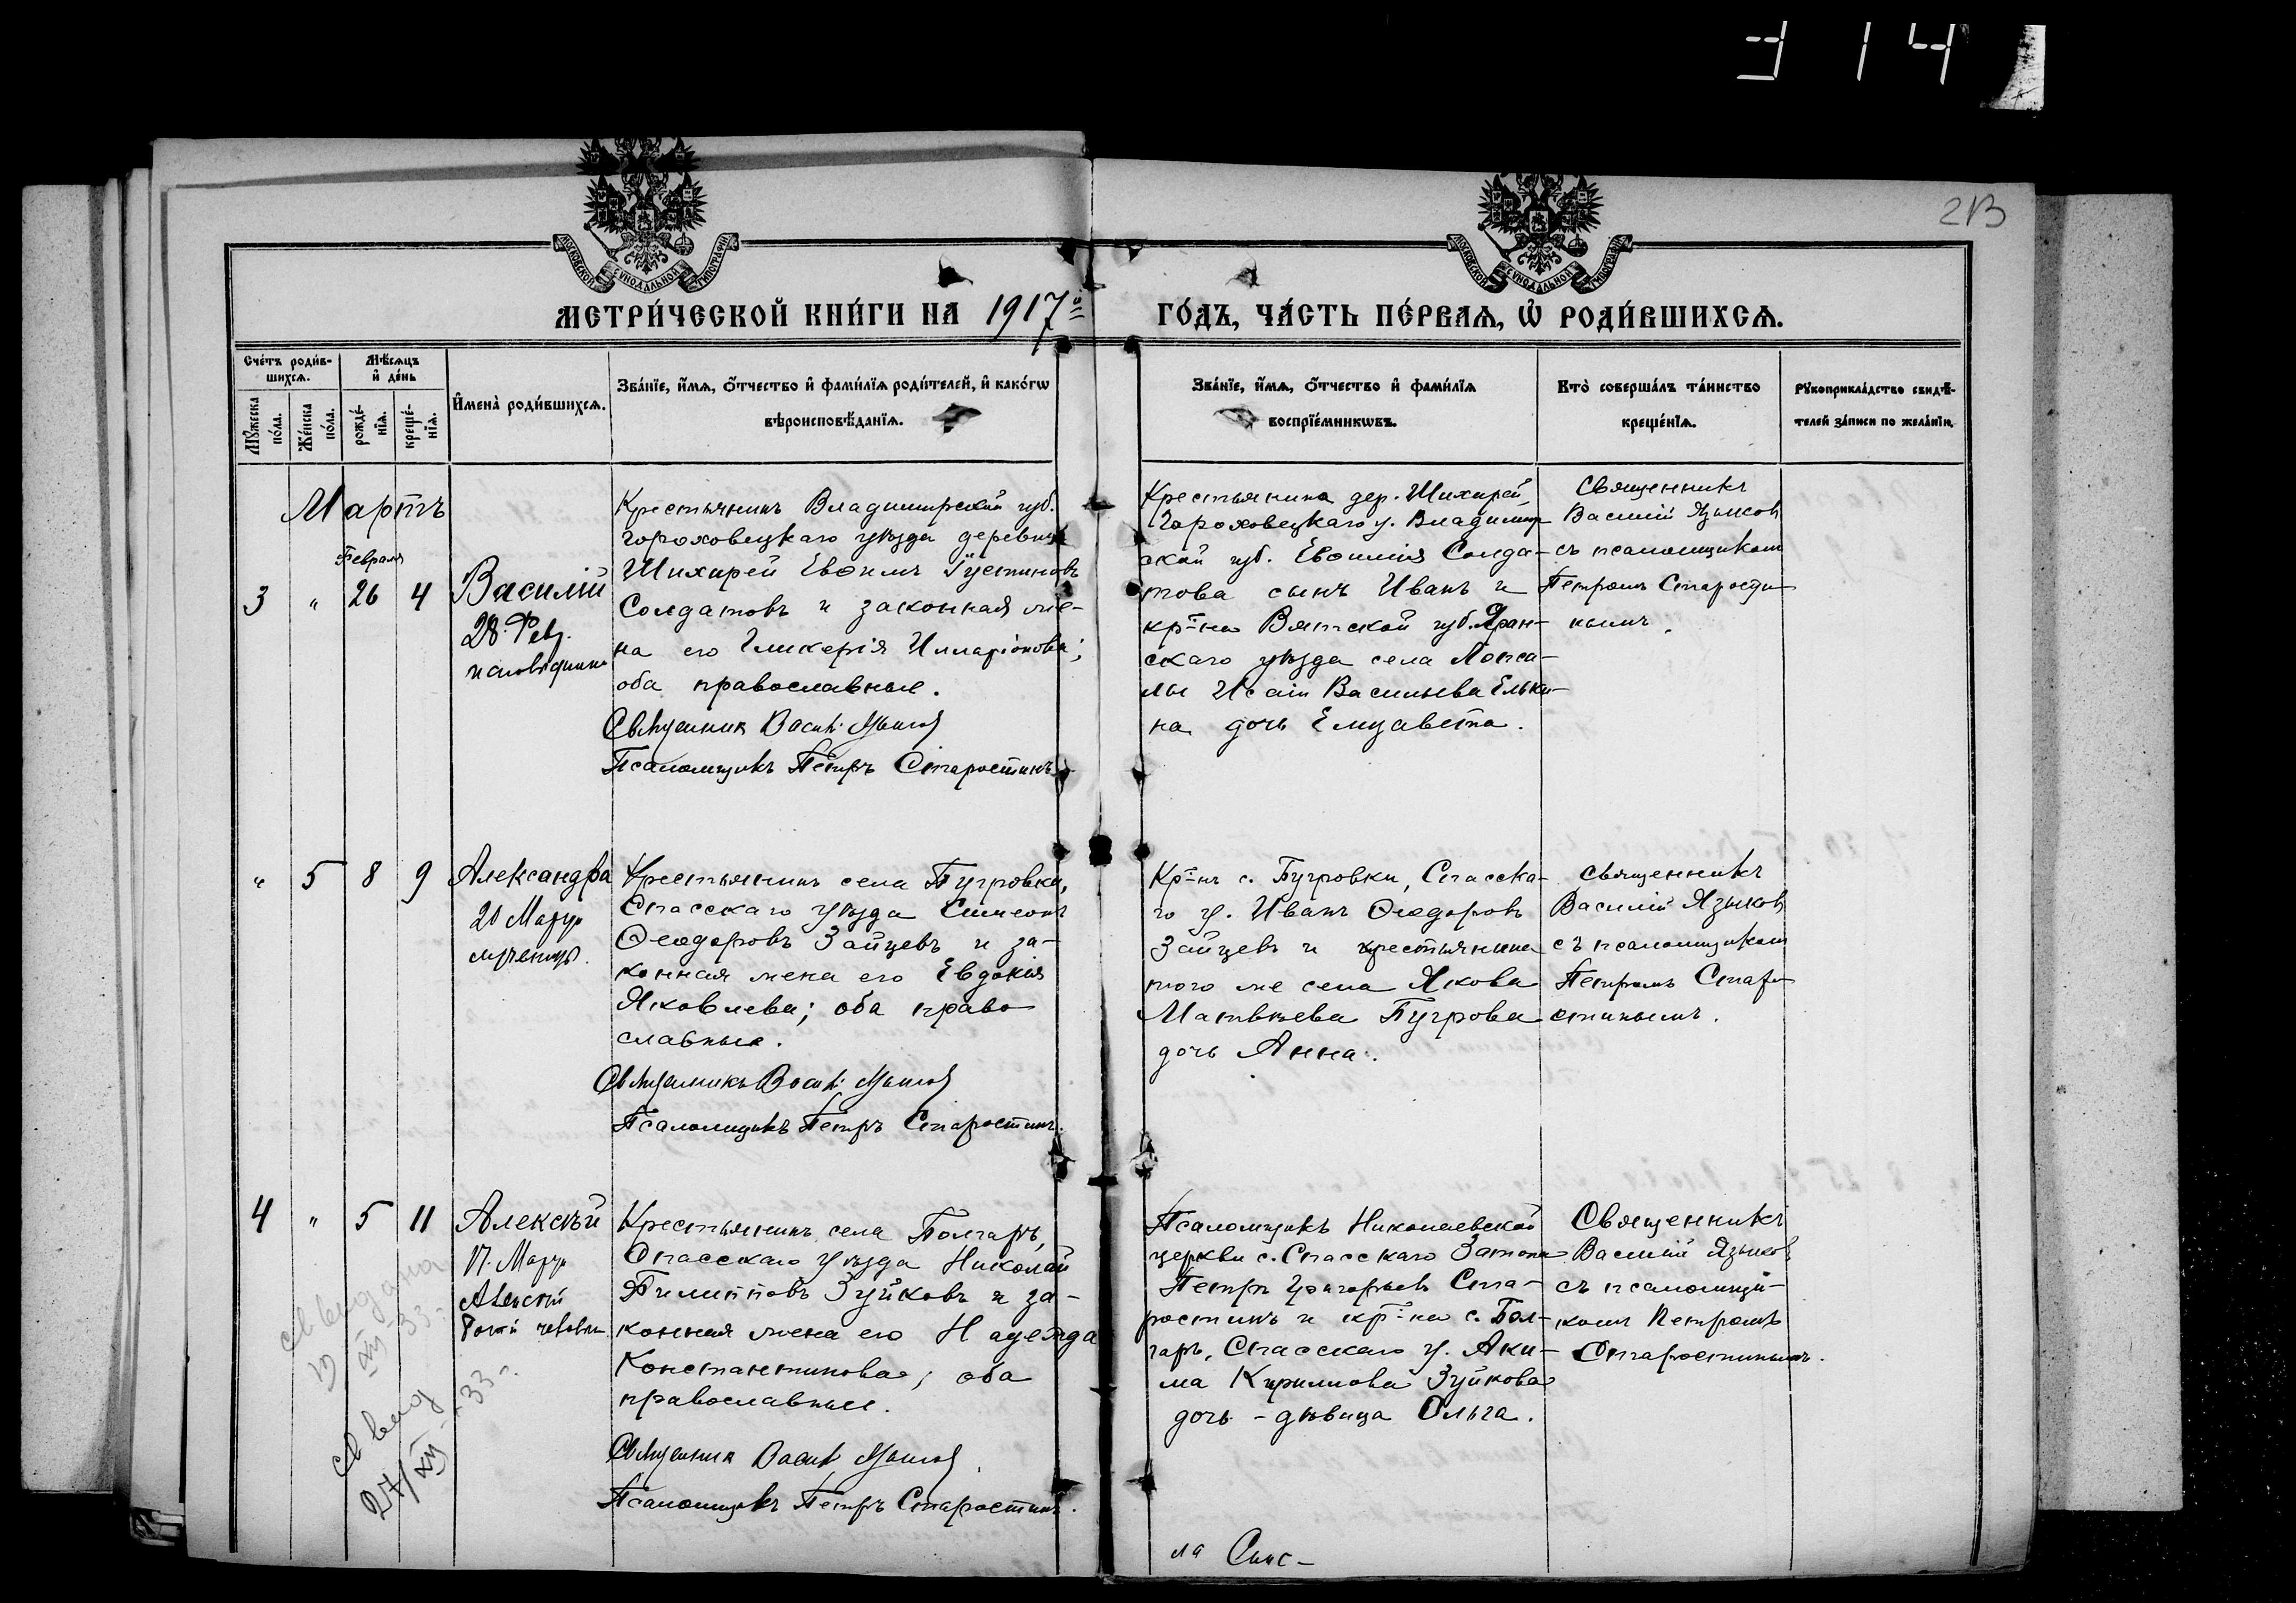 314
213
МОСКОВСКОЙ СѴНОДАЛЬНОЙ ТИПОГРАФІИ
МОСКОВСКОЙ СѴНОДАЛЬНОЙ ТИПОГРАФІИ
МЕТРИ́ЧЕСКОЙ КНИ́ГИ НА 1917й
ГО́ДЪ, ЧА́СТЬ ПЕ́РВАЯ, Ѡ҆ РОДИ́ВШИХСЯ.
Сче́тъ роди́в-
шихся.
Мѣ́сяцъ
и҆ де́нь
Мꙋ́жеска
по́ла.
Же́нска
по́ла.
рожде́-
нїя.
креще́-
нїя.
И҆мена̀ роди́вшихся.
Зва́нїе, и҆́мя, ѻ҆́тчество и҆ фами́лїя роди́телей, и҆ како́гѡ
вѣроисповѣ́данїя.
Зва́нїе, и҆́мя, ѻ҆́тчество и҆ фами́лїя
воспрїе́мникѡвъ.
Кто̀ соверша́лъ та́инство
креще́нїя.
Рꙋкоприкла́дство свидѣ́-
телей за́писи по жела́нїю.
Мартъ
Февраля
3 " 26 4
Василій
28 Фев.
исповѣдника
Крестьянинъ Владимирской губ.
Гороховецкаго уѣзда деревни
Шихирей Евѳимъ Іустиновъ
Солдатовъ и законная же-
на его Гликерія Илларіонова;
оба православные.
Священникъ Васил. Языковъ
Псаломщикъ Петръ Старостинъ.
Крестьянина дер. Шихирей,
Гороховецкаго у. Владимир-
ской губ. Евѳимія Солда-
това сынъ Иванъ и
кр-на Вятской губ. Яран-
скаго уѣзда села Лопса-
лы Исаіи Васильева Ельки-
на дочь Елизавета.
Священникъ
Василій Языковъ
съ псаломщикомъ
Петромъ Старости-
нымъ.
" 5 8 9
Александра
20 Марта
мученицы.
Крестьянинъ села Бугровки,
Спасскаго уѣзда Симеонъ
Ѳеодоровъ Зайцевъ и за-
конная жена его Евдокія
Яковлева; оба право
славные.
Священникъ Васил. Языковъ
Псаломщикъ Петръ Старостинъ.
Кр-нъ с. Бугровки, Спасска-
го у. Иванъ Ѳеодоровъ
Зайцевъ и крестьянина
того же села Якова
Матвѣева Бугрова
дочь Анна.
Священникъ
Василій Языковъ
съ псаломщикомъ
Петромъ Старо-
стинымъ.
4 " 5 11
Алексѣй
17. Марта
Алексѣй
Божій человѣкъ
Крестьянинъ села Болгаръ,
Спасскаго уѣзда Николай
Филипповъ Зуйковъ и за-
конная жена его Надежда
Константинова; оба
православные.
Священникъ Васил. Языковъ
Псаломщикъ Петръ Старостинъ.
Псаломщикъ Николаевской
церкви с. Спасскаго Затона
Петръ Григорьевъ Ста-
ростинъ и кр-на с. Бол-
гаръ, Спасскаго у. Аки-
ма Кириллова Зуйкова
дочь - дѣвица Ольга.
Священникъ
Василій Языковъ
съ псаломщи-
комъ Петромъ
Старостинымъ.
св выдана
19 XII 33
св выд
27/XII - 33 -